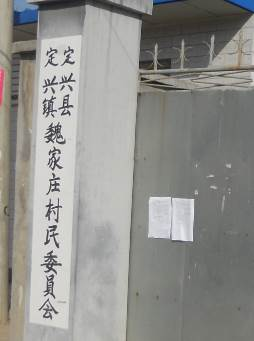 定兴县
定兴鎮
魏家庄村民委員会